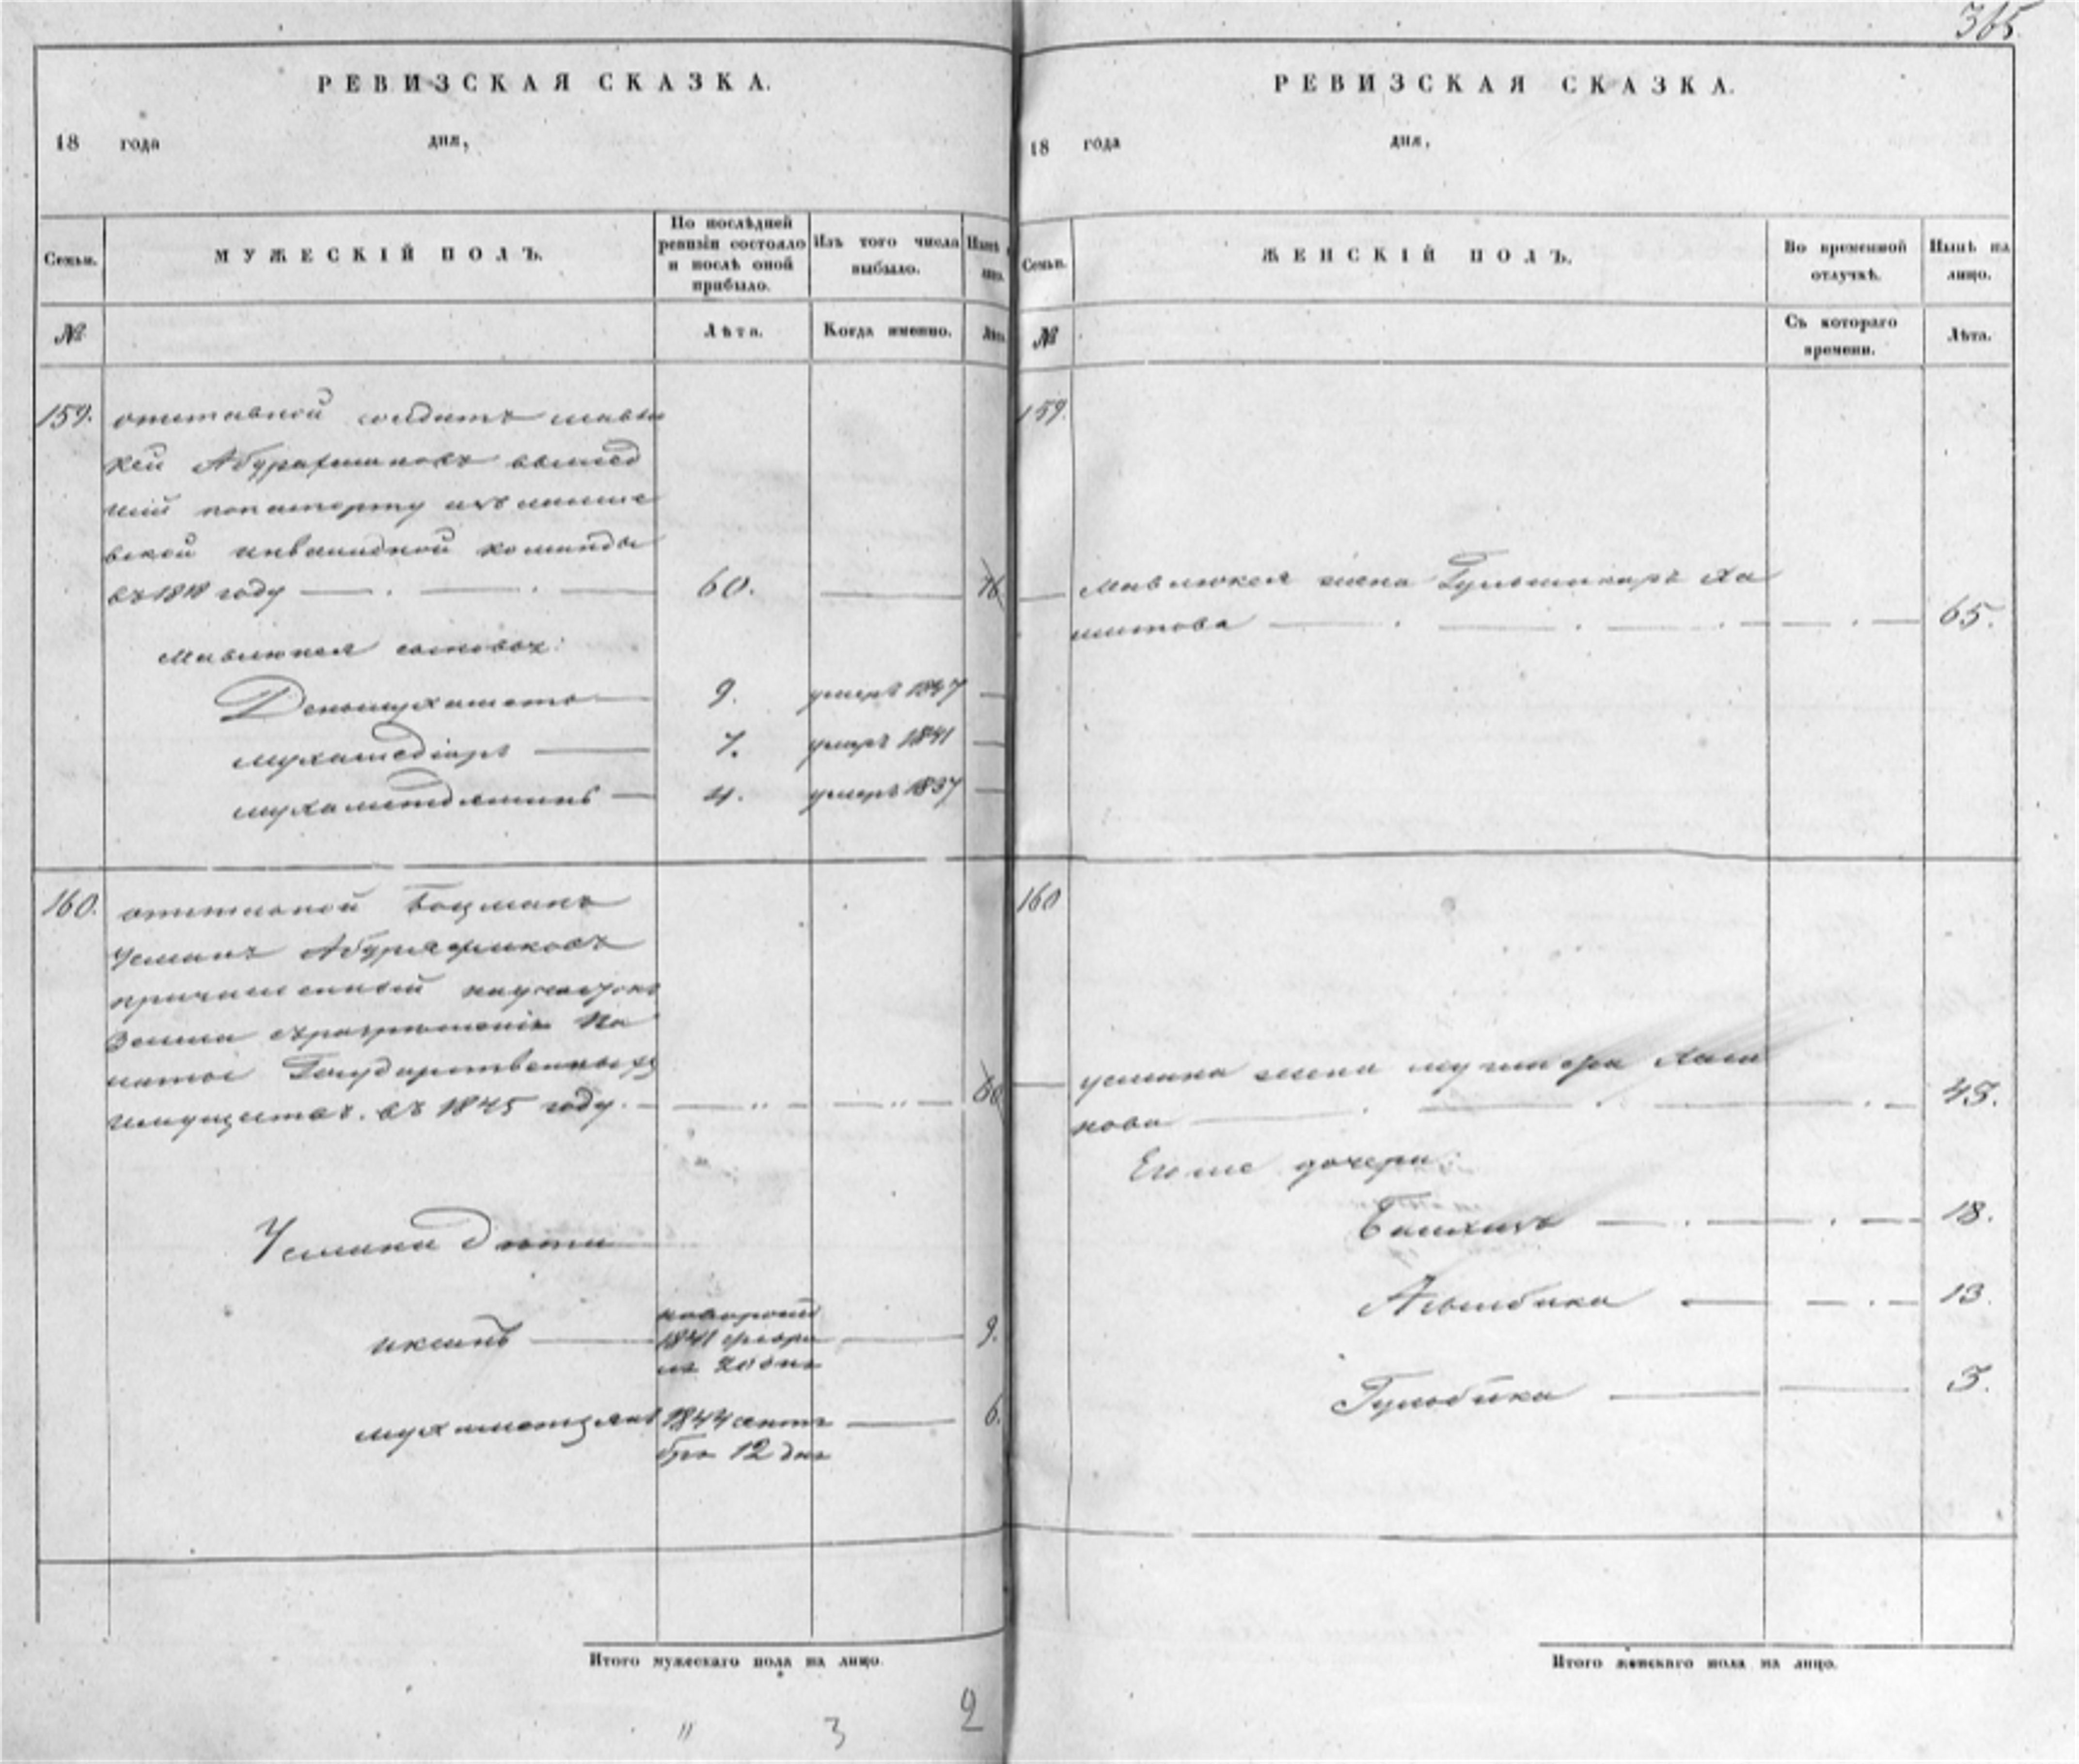 365
РЕВИЗСКАЯ СКАЗКА.
18 года дня,
Семьи. МУЖЕСКІЙ ПОЛЪ. По послѣдней ревизіи состояло и послѣ оной прибыло. Изъ того числа выбыло. Нынѣ
№ Лѣта. Когда именно. Лѣта
159. отставной солдатъ мавлю
кей Абурахмановъ вышед
шій
вской инвалидной команды
въ 1818 году 60. 76
Мавлюкея сыновья:
9. умеръ 1847
мухамедіаръ 7. умеръ 1841
мухаметдяминъ 4. умеръ 1837
160. отставной Боцманъ
Усманъ Абдряфиковъ
причисленный
земли съ разрѣшенія Па
латы Государственныхъ
имуществъ. въ 1845 году. 60
Усмана дѣти
новорожд
1841 февра
ля 20 дня 9.
1844 сентя
бря 12 дня 6.
Итого мужескаго пола на лицо.
" 3 2
РЕВИЗСКАЯ СКАЗКА.
18 года дня,
Семьи. ЖЕНСКІЙ ПОЛЪ. Во временной отлучкѣ. Нынѣ на лицо.
№ Съ котораго времени. Лѣта.
159.
Мавлюкея жена Ха
митова 65.
160
усмана жена Хали
кова 45.
Ихже дочери:
18.
13.
Гульбика 3.
Итого женскаго пола на лицо.